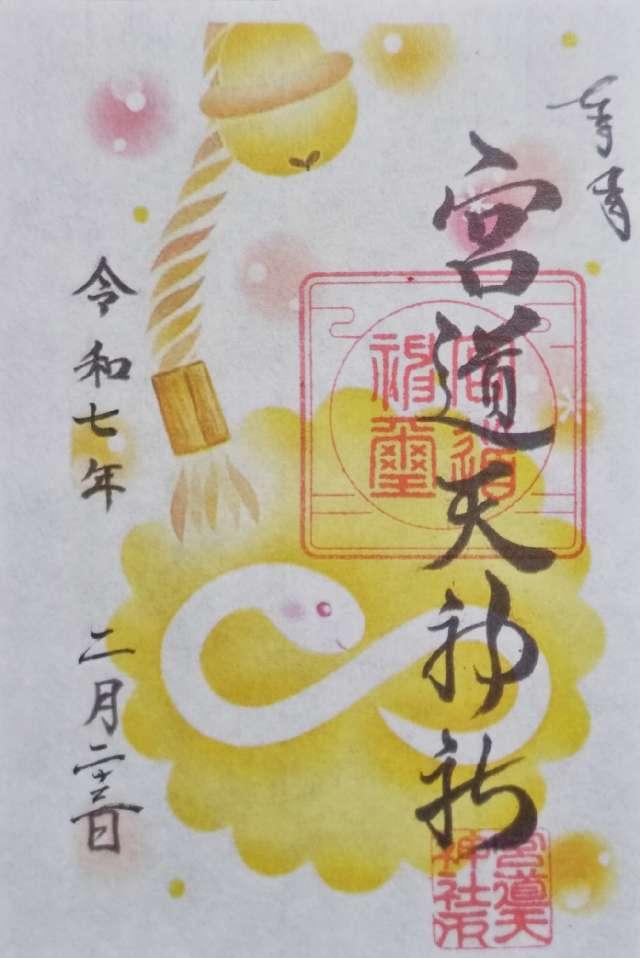 奉拝
宮道天神社
宮道
神璽
宮道天
神社印
令和七年 二月二十六日